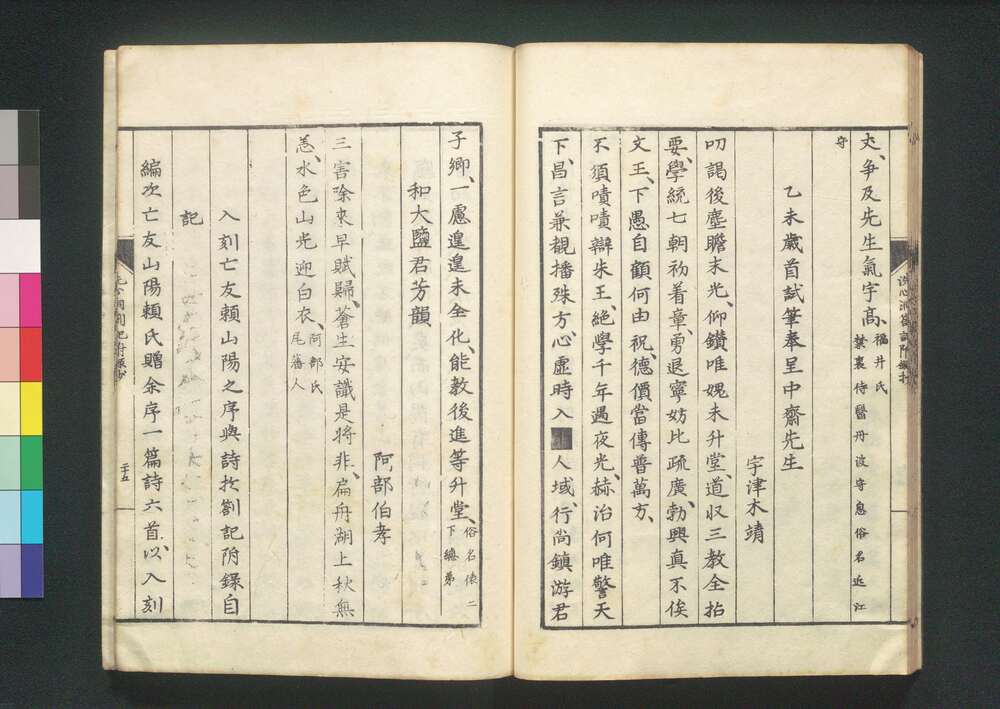 夾、争及先生氣宇高、福井氏
禁裏侍醫丹波守息俗名近江
守
乙未歳首試筆奉呈中齋先生
宇津木靖
叨謁後塵瞻末光、仰鑚唯媿未升堂、道収三教全拈
要、學統七朝初着章、勇退寧妨比疏廣、勃興真不俟
文王、下愚自顧何由祝、德價當傳普萬方、
不須嘖嘖辯朱王、絶學千年遇夜光、赫治何唯警天
下、昌言兼観播殊方、心虛時入人域、行尚鎮游君
子卿、一慮遑遑未全化、能教後進等升堂、俗名俵二
下總弟
和大鹽君芳韻
阿部伯孝
三害除來早賦歸、蒼生安識是將非、扁舟湖上秋無
恙、水色山光迎白衣、阿部氏
尾藩人
入刻亡友頼山陽之序與詩於劄記附録自
記
編次亡友山陽頼氏贈余序一篇詩六首、以入刻
二十五